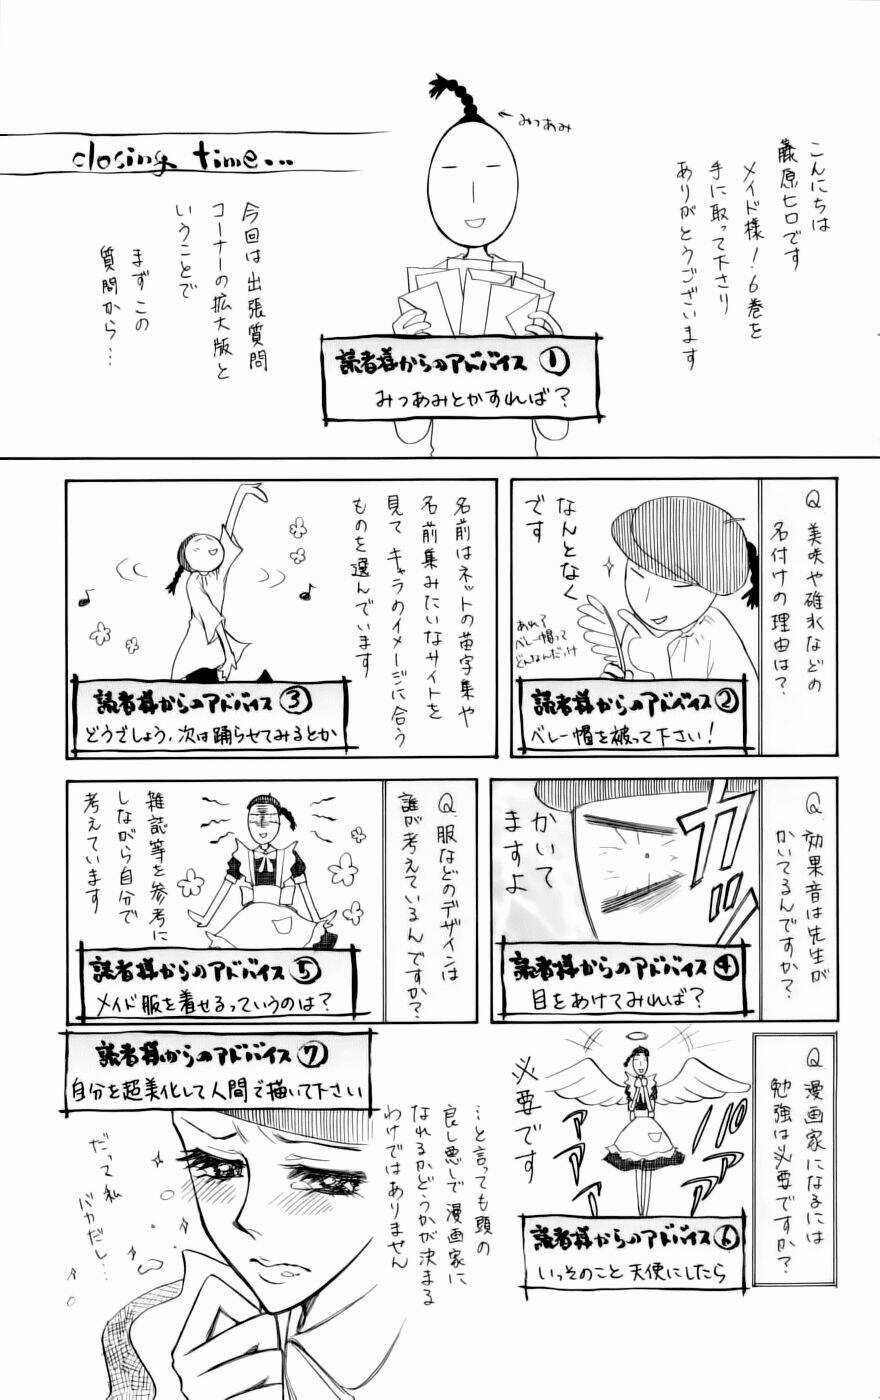 こんにちは
藤原ヒロです
メイド様！6巻を
手に取って下さり
ありがとうございます
←みつあみ
closing time...
今回は出張質問
コーナーの拡大版と
いうことで
まずこの
質問から…
読者様からのアドバイス①
みつあみとかすれば？
Q 美咲や碓氷などの
名付けの理由は？
なんとなく
です
あれ？
ベレー帽って
どんなんだっけ
読者様からのアドバイス②
ベレー帽を被って下さい！
名前はネットの苗字集や
名前集みたいなサイトを
見てキャラのイメージに合う
ものを選んでいます
読者様からのアドバイス③
どうでしょう、次は踊らせてみるとか
Q 効果音は先生が
かいてるんですか？
ガッ
かいて
ますよ
読者様からのアドバイス④
目をあけてみれば？
Q 服などのデザインは
誰が考えているんですか？
雑誌等を参考に
しながら自分で
考えています
読者様からのアドバイス⑤
メイド服を着せるっていうのは？
Q 漫画家になるには
勉強は必要ですか？
必要です
パァァァ
アァァ
読者様からのアドバイス⑥
いっそのこと天使にしたら
読者様からのアドバイス⑦
自分を超美化して人間で描いて下さい
…と言っても頭の
良し悪しで漫画家に
なれるかどうかが決まる
わけではありません
だって私
バカだし…